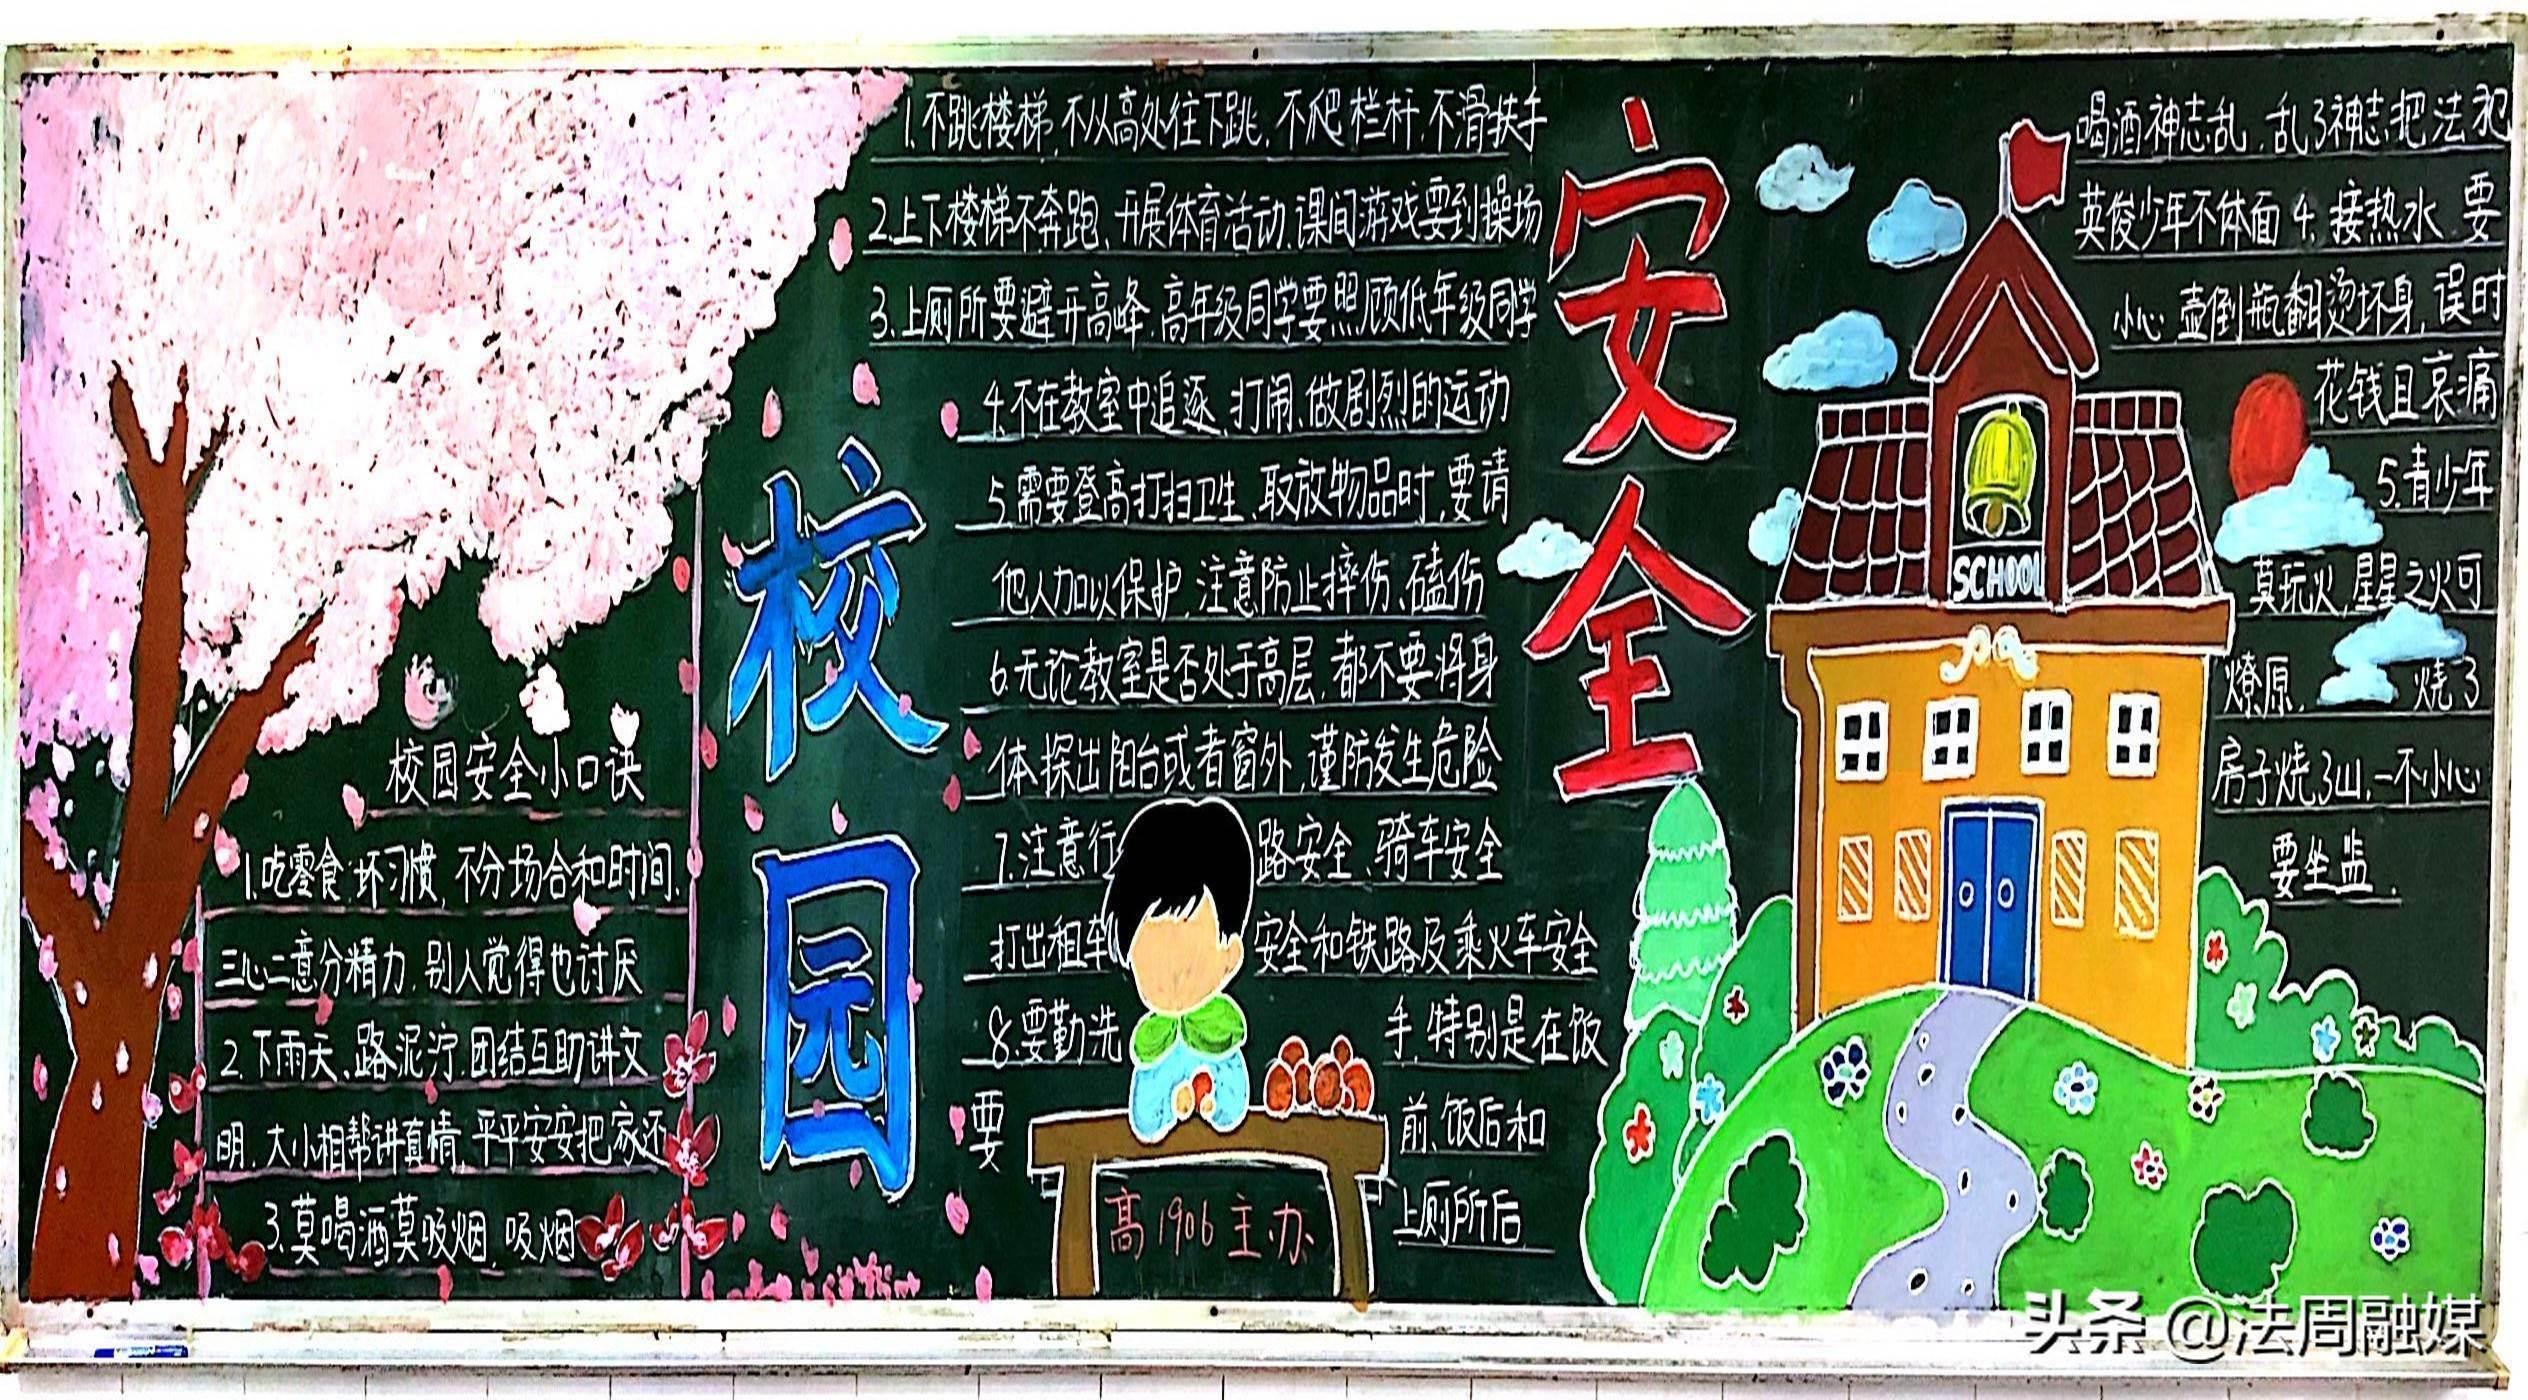 校园
安全
1.不跳楼梯,不从高处往下跳,不爬栏杆,不滑扶手
2.上下楼梯不奔跑、开展体育活动、课间游戏要到操场
3.上厕所要避开高峰,高年级同学要照顾低年级同学
4.不在教室中追逐、打闹、做剧烈的运动
5.需要登高打扫卫生、取放物品时,要请
他人加以保护,注意防止摔伤、磕伤
6.无论教室是否处于高层,都不要将身
体探出阳台或者窗外,谨防发生危险
7.注意行路安全、骑车安全
打出租车安全和铁路及乘火车安全
8.要勤洗手,特别是在饭
前、饭后和
上厕所后
要
高1906主办
校园安全小口诀
1.吃零食:坏习惯,不分场合和时间,
三心二意分精力,别人觉得也讨厌
2.下雨天、路泥泞,团结互助讲文
明,大小相帮讲真情,平平安安把家还
3.莫喝酒莫吸烟,吸烟
喝酒神志乱,乱了神志把法犯
英俊少年不体面 4.接热水 要
小心 壶倒瓶翻烫坏身,误时
花钱且哀痛
5.青少年
莫玩火,星星之火可
燎原, 烧了
房子烧了山,一不小心
要坐监.
SCHOOL
头条 @法周融媒